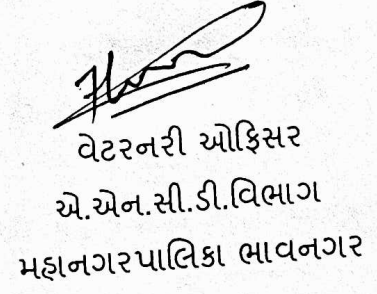 વેટરનરી ઓફિસર
એ.એન.સી.ડી.વિભાગ
મહાનગરપાલિકા ભાવનગર